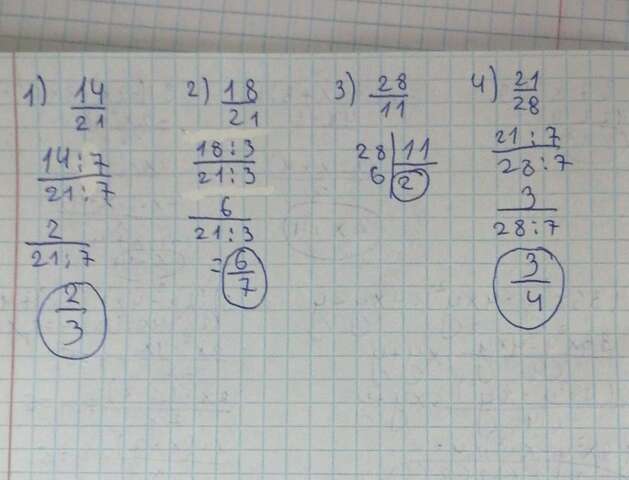 1) 14/21
14:7/21:7
2/21:7
2/3
2) 18/21
18:3/21:3
6/21:3
= 6/7
3) 28/11
28 | 11
6 | 2
4) 21/28
21:7/28:7
3/28:7
3/4